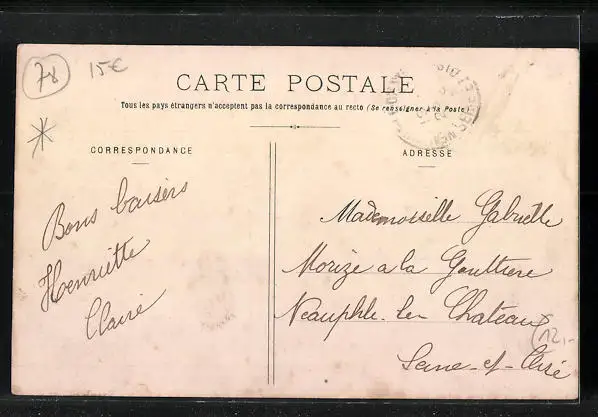 78
15€
CARTE POSTALE
Tous les pays étrangers n'acceptent pas la correspondance au recto (Se renseigner à la Poste)
CORRESPONDANCE
Bons baisers
Henriette
Claire
ADRESSE
Mademoiselle Gabrielle
Morize a la Gouttiere
Neauphle-les Chateaux
Seine-et-Oise
(12,-